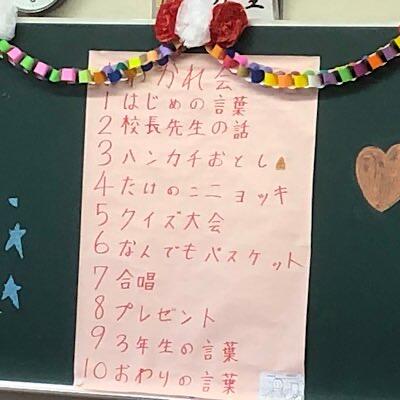 かれ会
1 はじめの言葉
2 校長先生の話
3 ハンカチおとし
4 たけのこニョッキ
5 クイズ大会
6 なんでもバスケット
7 合唱
8 プレゼント
9 3年生の言葉
10 おわりの言葉